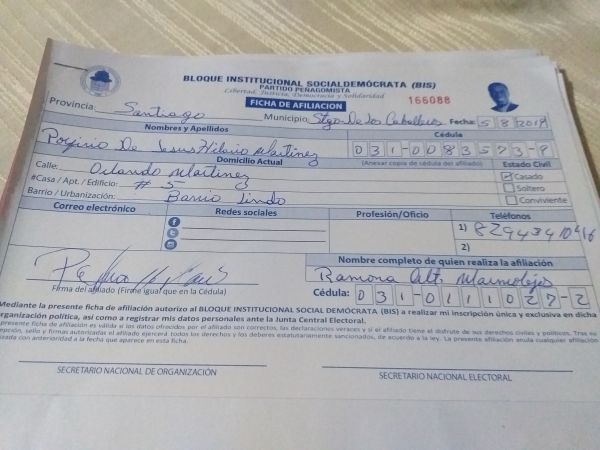 BLOQUE INSTITUCIONAL SOCIALDEMÓCRATA (BIS)
PARTIDO PEÑAGOMISTA
Libertad, Justicia, Democracia y Solidaridad
FICHA DE AFILIACION
166088
Provincia: Santiago Municipio: Stgo De los Caballeros Fecha: 5/8/2019
Nombres y Apellidos Cédula
Porfirio De Jesus Hilario Martinez 031-0083573-9
Domicilio Actual (Anexar copia de cédula del afiliado) Estado Civil
Calle: Orlando Martinez Casado
#Casa / Apt. / Edificio: # 5 Soltero
Barrio / Urbanización: Barrio Lindo Conviviente
Correo electrónico Redes sociales Profesión/Oficio Teléfonos
1) 8294391046
2)
Nombre completo de quien realiza la afiliación
Ramona Alt. Marmolejos
Firma del afiliado (Firme igual que en la Cédula)
Cédula: 031-0111027-2
Mediante la presente ficha de afiliación autorizo al BLOQUE INSTITUCIONAL SOCIAL DEMÓCRATA (BIS) a realizar mi inscripción única y exclusiva en dicha
organización política, así como a registrar mis datos personales ante la Junta Central Electoral.
presente ficha de afiliación es válida si los datos ofrecidos por el afiliado son correctos, las declaraciones veraces y si el afiliado tiene el disfrute de sus derechos civiles y políticos. Tras su
sello y firmas autorizadas el afiliado ejercerá todos los derechos y los deberes estatutariamente sancionados, de acuerdo a la ley. La presente afiliación anula cualquier afiliación
con anterioridad a la fecha que aparece en esta ficha.
SECRETARIO NACIONAL DE ORGANIZACIÓN
SECRETARIO NACIONAL ELECTORAL